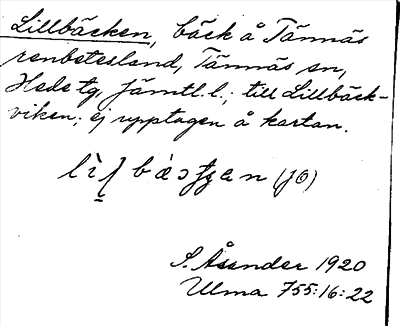 Lillbäcken, bäck å Tännäs
renbetesland, Tännäs sn,
Hede tg, Jämtl. l.; till Lillbäck-
viken; ej upptagen å kartan.
(JO)
S. Åsander 1920
Ulma 755:16:22